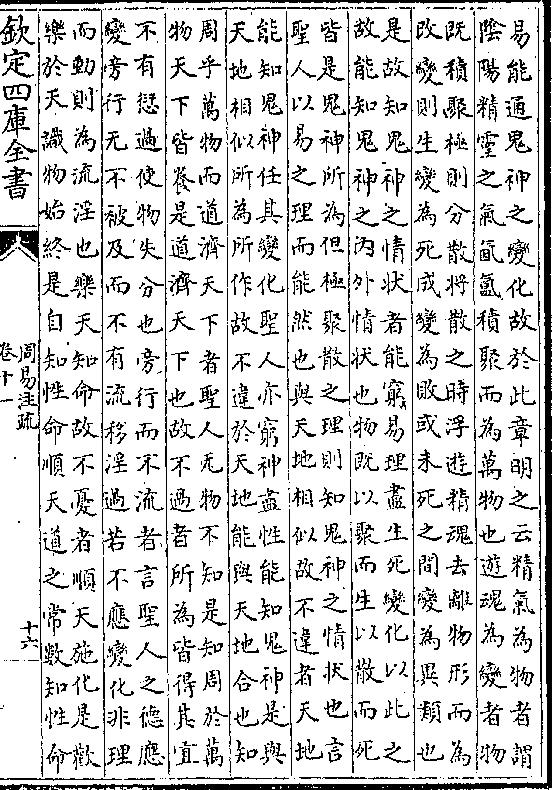 易能通鬼神之變化故於此章明之云精氣為物者謂
陰陽精靈之氣氤氳積聚而為萬物也遊魂為變者物
既積聚極則分散將散之時浮遊精魂去離物形而為
改變則生變為死成變為敗或未死之間變為異類也
是故知鬼神之情狀者能窮易理盡生死變化以此之
故能知鬼神之內外情狀也物既以聚而生以散而死
皆是鬼神所為但極聚散之理則知鬼神之情狀也言
聖人以易之理而能然也與天地相似故不違者天地
能知鬼神任其變化聖人亦窮神盡性能知鬼神是與
天地相似所為所作故不違於天地能與天地合也知
周乎萬物而道濟天下者聖人无物不知是知周於萬
物天下皆養是道濟天下也故不過者所為皆得其宜
不有愆過使物失分也旁行而不流者言聖人之德應
變旁行无不被及而不有流移淫過若不應變化非理
而動則為流淫也樂天知命故不憂者順天施化是歡
樂於天識物始終是自知性命順天道之常數知性命
欽定四庫全書
周易注疏
卷十一
十六